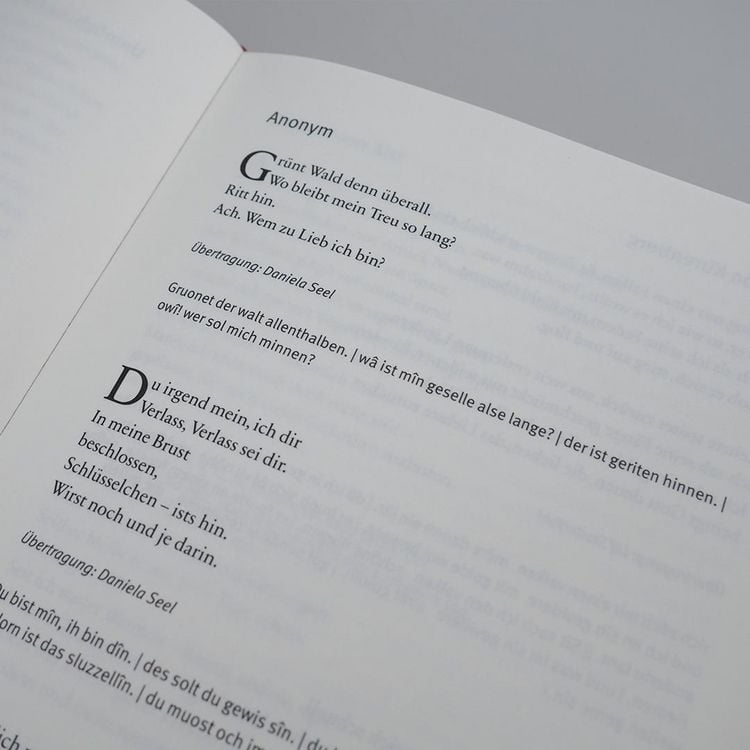 Anonym
Grünt Wald denn überall.
Wo bleibt mein Treu so lang?
Ritt hin.
Ach. Wem zu Lieb ich bin?
Übertragung: Daniela Seel
Gruonet der walt allenthalben. | wâ ist mîn geselle alse lange? | der ist geriten hinnen. |
owî! wer sol mich minnen?
Du irgend mein, ich dir
Verlass, Verlass sei dir.
In meine Brust
beschlossen,
Schlüsselchen – ists hin.
Wirst noch und je darin.
Übertragung: Daniela Seel
bist mîn, ih bin dîn. | des solt du gewis sîn. |
ist das sluzzellîn. | du muost och